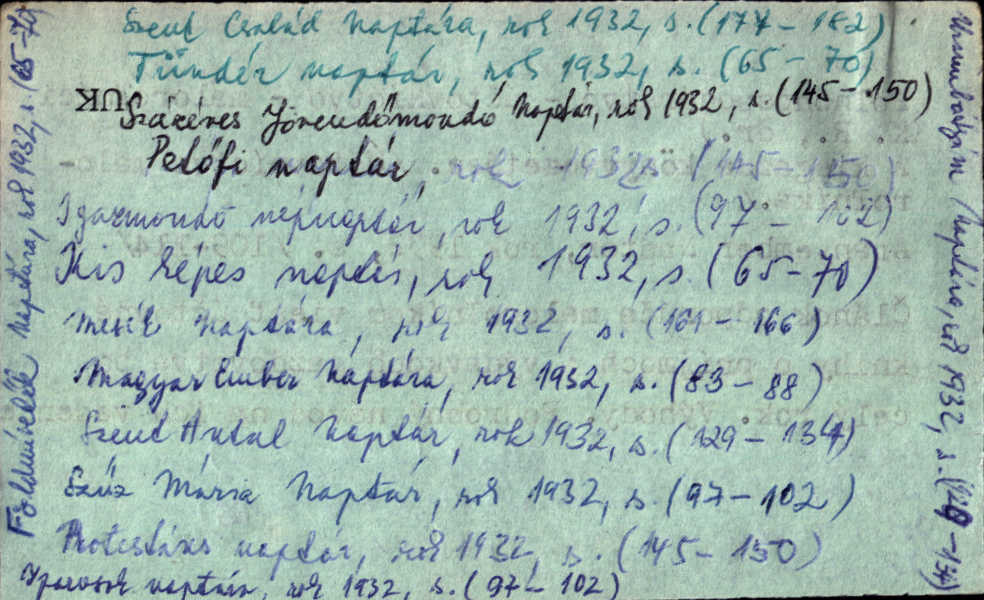 Szent Család Naptára, rok 1932, s. (177-182)
Tündér naptár, rok 1932, s. (65-70)
SUK
Százéves Jövendőmondó Naptár, rok 1932, s. (145-150)
Petőfi naptár, rok 1932, s. (145-150)
Igazmondó népnaptár, rok 1932, s. (97-102)
Kis képes naptár, rok 1932, s. (65-70)
Mesék Naptára, rok 1932, s. (161-166)
Magyar Ember Naptára, rok 1932, s. (83-88)
Szent Antal Naptár, rok 1932, s. (129-134)
Szűz Mária Naptár, rok 1932, s. (97-102)
Protestáns naptár, rok 1932, s. (145-150)
Iparosok naptára, rok 1932, s. (97-102)
Földmívelők Naptára, rok 1932, s. (65-70)
Naptára, rok 1932, s. (129-134)